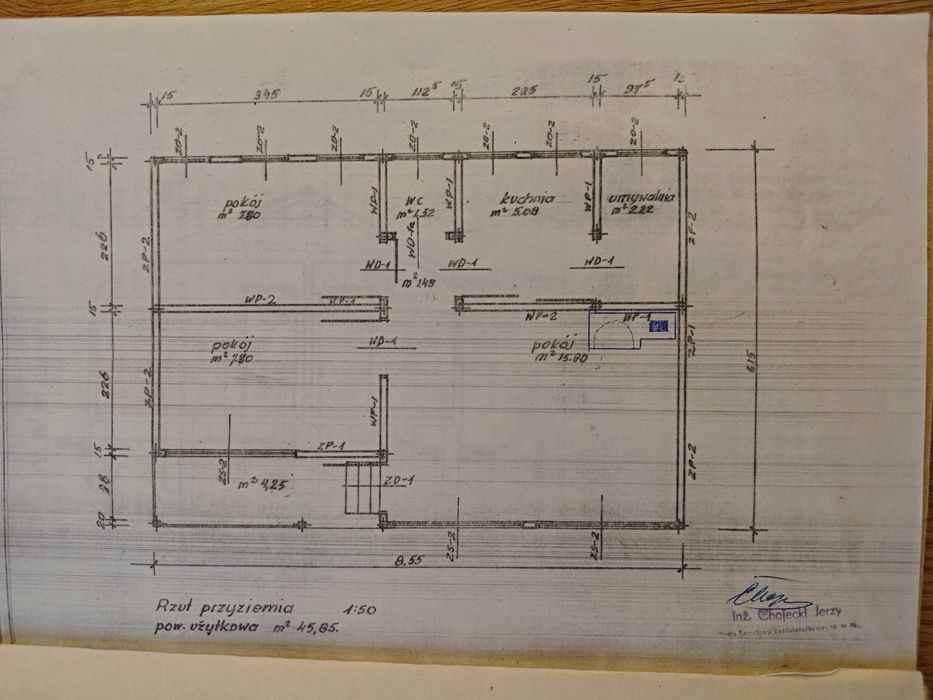 15 345 15 112⁵ 15 225 15 97⁵
ZO-2 ZO-2 ZO-2 ZO-2 ZO-2 ZO-2 ZO-2
15
pokój
m² 7.80
WD-1
WC
m² 1,32
WD-1a
WP-1
kuchnia
m² 5.08
WP-1
umywalnia
m² 2.22
226
ZP-2
ZP-2
WD-1
WD-1
WD-1
m² 1.49
15
WP-2
WP-1
WP-2
WP-1
pokój
m² 7,80
WD-1
pokój
m² 15.90
ZP-1
615
226
ZP-2
WP-1
15
ZP-1
ZS-2
m² 4,25
ZD-1
98
ZP-2
20
ZS-2
ZS-2
8.55
Rzut przyziemia 1:50
pow. użytkowa m² 45,85.
Inż. Chojecki Jerzy